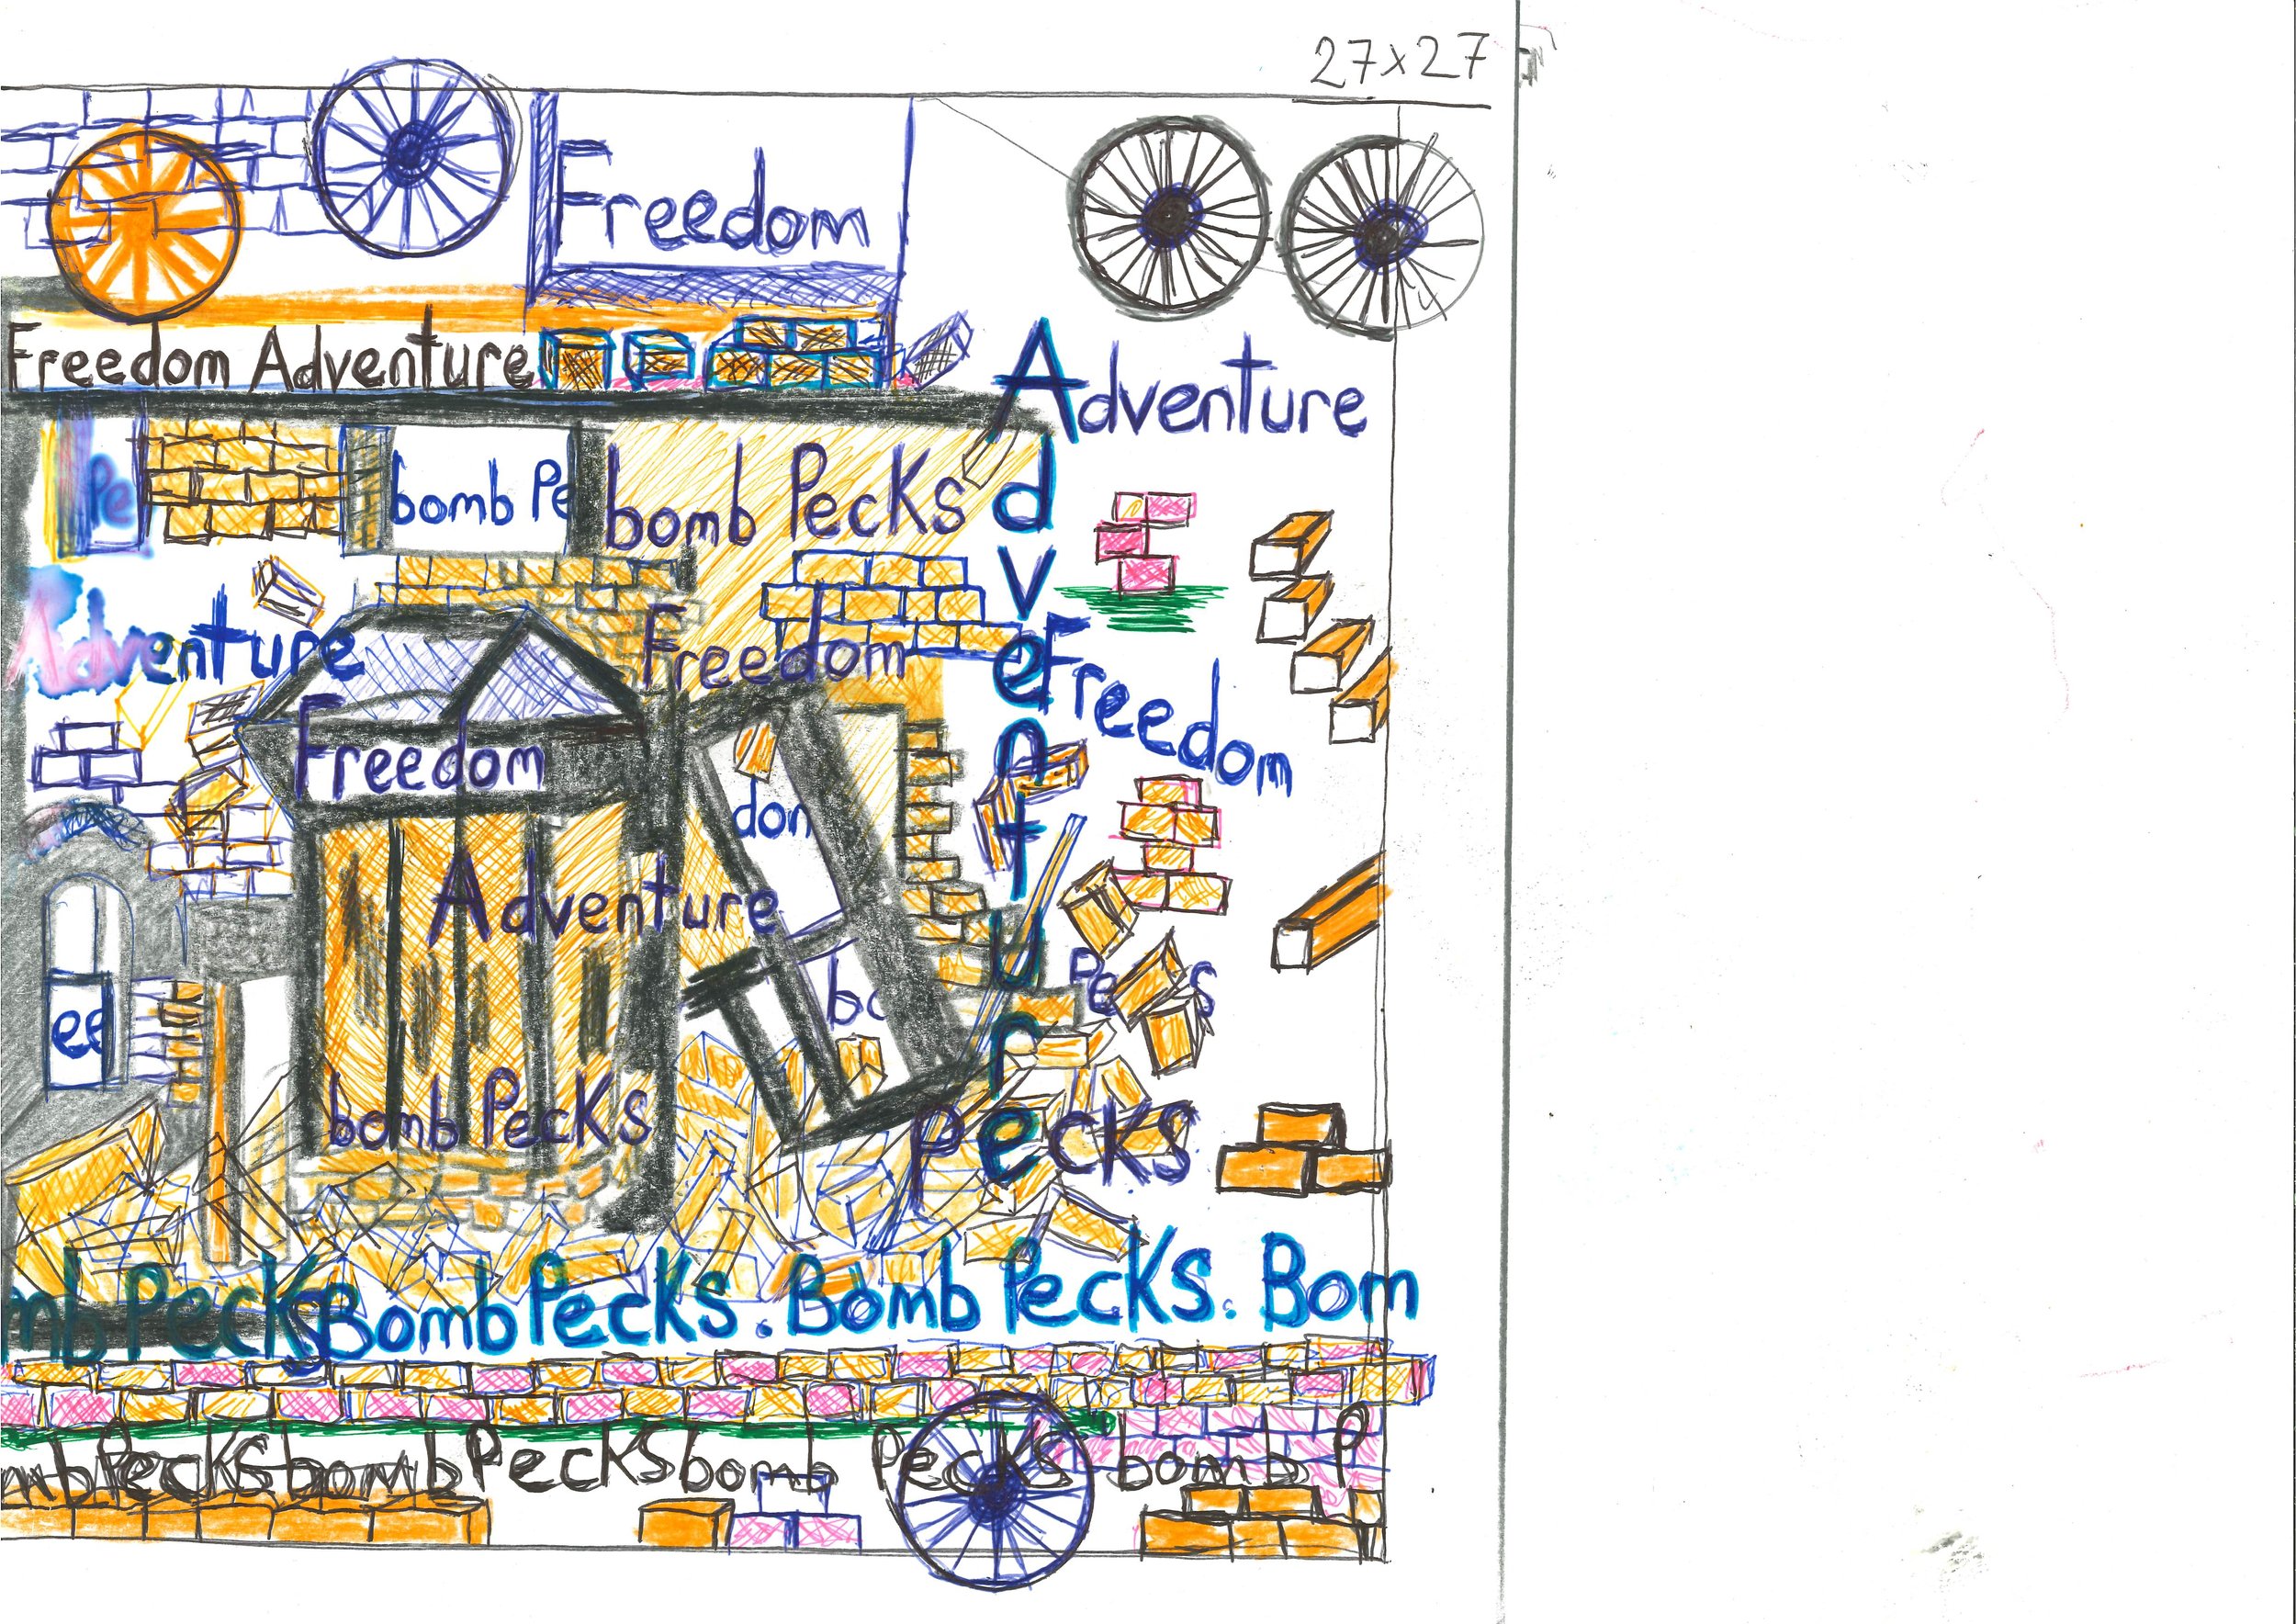 27x27
Freedom
Freedom Adventure
Adventure
Pe
bomb Pe
bomb Pecks
Adventure
Adventure
Freedom
Freedom
Freedom
don
Adventure
ee
bo
Pe s
bomb Pecks
Pecks
mb Pecks Bomb Pecks. Bomb Pecks. Bom
mb Pecks bomb Pecks bomb Pecks bomb P